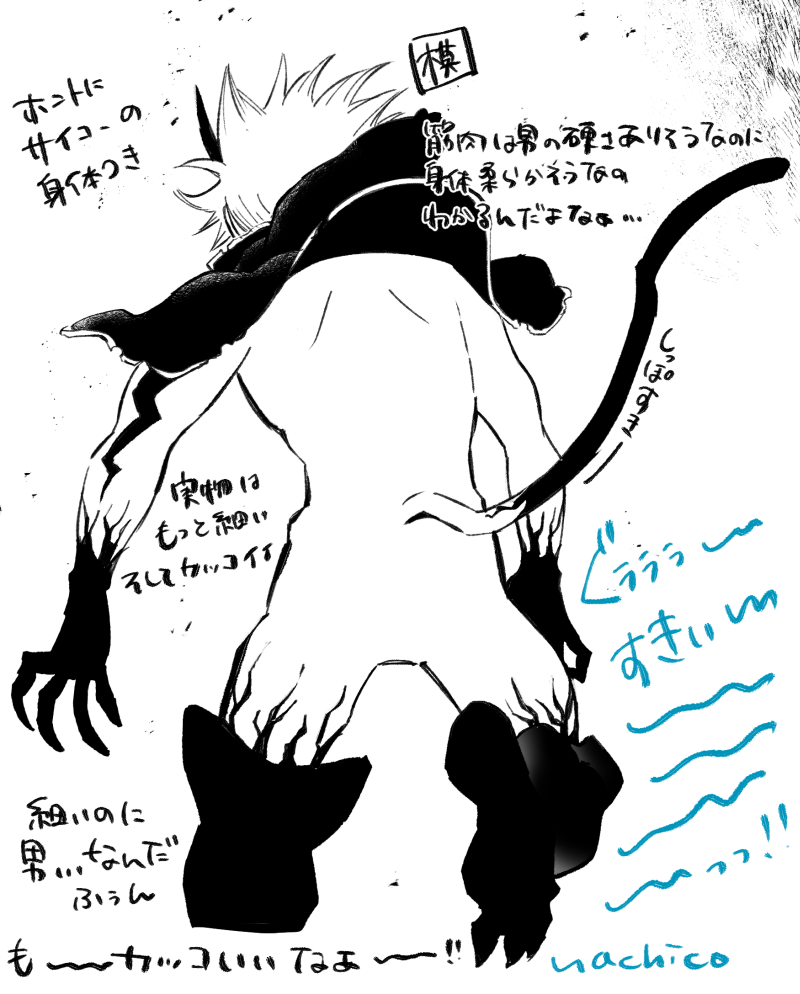 模
ホントに
サイコーの
身体つき
筋肉は男の硬さありそうなのに
身体柔らかそうなの
わかるんだよなぁ…
しっぽすき
実物は
もっと細い
そしてカッコイイ
ぐぅぅぅ〜
すきぃ〜
〜
〜
〜
〜っっ!!
細いのに
男…なんだ
ふぅん
も〜カッコいいなぁ〜!!
nachico